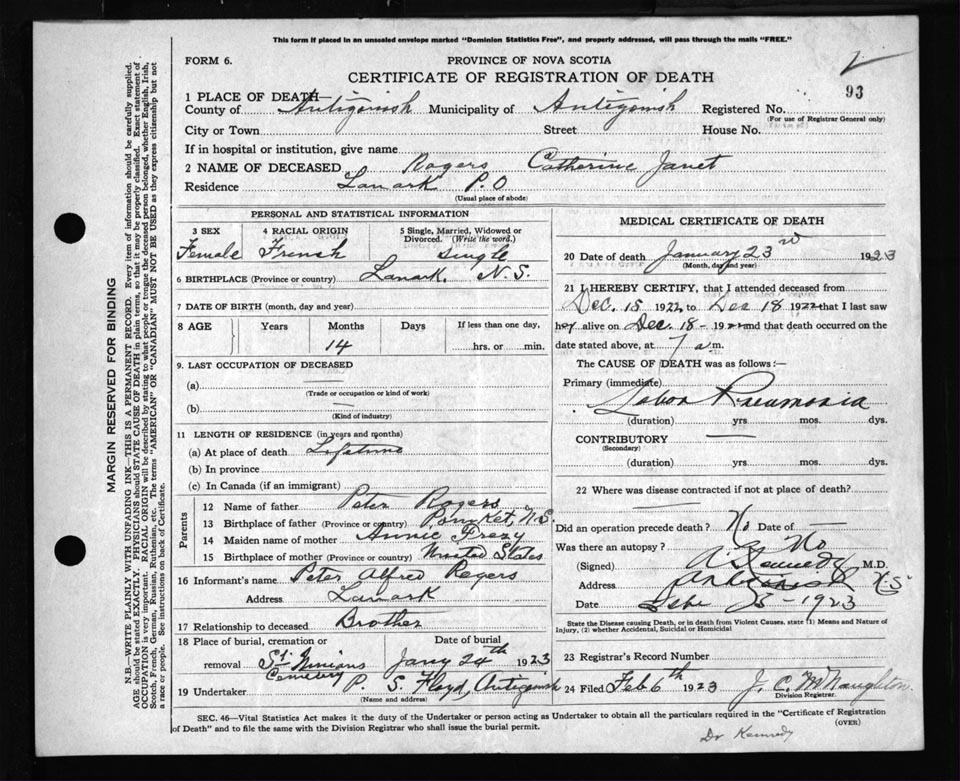 This form if placed in an unsealed envelope marked "Dominion Statistics Free", and properly addressed, will pass through the mails "FREE."
FORM 6.
PROVINCE OF NOVA SCOTIA
CERTIFICATE OF REGISTRATION OF DEATH
93
1 PLACE OF DEATH
County of Antigonish Municipality of Antigonish Registered No.
(For use of Registrar General only)
City or Town Street House No.
If in hospital or institution, give name
2 NAME OF DECEASED Rogers Catherine Janet
Residence Lanark P.O
(Usual place of abode)
PERSONAL AND STATISTICAL INFORMATION
3 SEX 4 RACIAL ORIGIN 5 Single, Married, Widowed or Divorced. (Write the word.)
Female French Single
6 BIRTHPLACE (Province or country) Lanark, N.S.
7 DATE OF BIRTH (month, day and year)
8 AGE Years Months Days If less than one day,
14 hrs. or min.
9. LAST OCCUPATION OF DECEASED
(a)
(Trade or occupation or kind of work)
(b)
(Kind of industry)
11 LENGTH OF RESIDENCE (in years and months)
(a) At place of death Lifetime
(b) In province
(c) In Canada (if an immigrant)
Parents
12 Name of father Peter Rogers
13 Birthplace of father (Province or country) Pomket, N.S.
14 Maiden name of mother Annie
15 Birthplace of mother (Province or country) United States
16 Informant's name Peter Alfred Rogers
Address Lanark
17 Relationship to deceased Brother
18 Place of burial, cremation or Date of burial
removal St. Ninians Cemetery Jany 24th 1923
19 Undertaker P. S. Floyd, Antigonish
(Name and address)
MEDICAL CERTIFICATE OF DEATH
20 Date of death January 23rd 1923
(Month, day and year)
21 I HEREBY CERTIFY, that I attended deceased from
Dec. 15 1922 to Dec 18 1922 that I last saw
her alive on Dec. 18 - 1922 and that death occurred on
date stated above, at 7 a.m.
The CAUSE OF DEATH was as follows:—
Primary (immediate)
Lobar Pneumonia
(duration) yrs. mos. dys.
CONTRIBUTORY
(Secondary)
(duration) yrs. mos. dys.
22 Where was disease contracted if not at place of death?
Did an operation precede death? No Date of
Was there an autopsy? No
(Signed) Kennedy M.D.
Address Antigonish N.S.
Date 1923
State the Disease causing Death, or in death from Violent Causes, state (1) Means and Nature of Injury, (2) whether Accidental, Suicidal or Homicidal
23 Registrar's Record Number
24 Filed Feb 6th 1923 J. C. McNaughton
Division Registrar.
SEC. 46—Vital Statistics Act makes it the duty of the Undertaker or person acting as Undertaker to obtain all the particulars required in the "Certificate of Registration of Death" and to file the same with the Division Registrar who shall issue the burial permit.
(OVER)
Dr Kennedy
MARGIN RESERVED FOR BINDING
N.B.—WRITE PLAINLY WITH UNFADING INK—THIS IS A PERMANENT RECORD. Every item of information should be carefully supplied.
AGE should be stated EXACTLY. PHYSICIANS should STATE CAUSE OF DEATH in plain terms, so that it may be properly classified. Exact statement of
OCCUPATION is very important. RACIAL ORIGIN will be described by stating to what people or tongue the deceased person belonged, whether English, Irish,
Scotch, French, German, Russian, Ruthenian, etc. The terms "AMERICAN" OR "CANADIAN" MUST NOT BE USED as they express citizenship but not
a race or people. See instructions on back of Certificate.